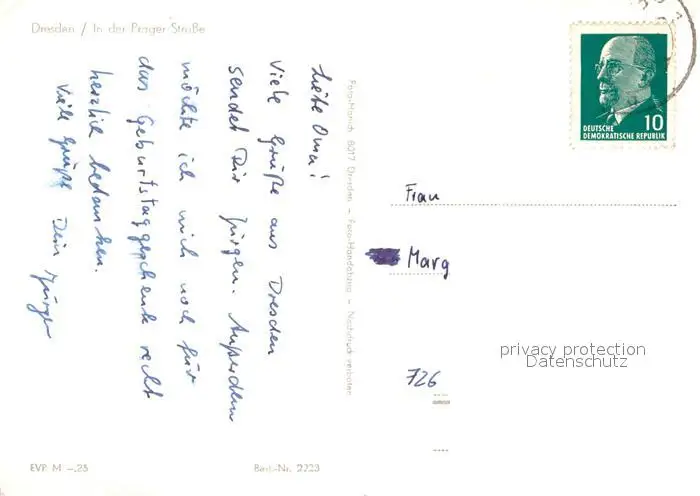 Dresden / In der Prager Straße
Liebe Oma!
Viele Grüße aus Dresden
sendet Dir Jürgen. Außerdem
möchte ich mich noch für
das Geburtstaggeschenk recht
herzlich bedanken.
Viele Grüße Dein Jürgen
EVP M -,25
Best.-Nr. 2223
Foto-Hanich 8017 Dresden - Foto-Handabzug - Nachdruck verboten
10
DEUTSCHE
DEMOKRATISCHE REPUBLIK
Frau
Marg
726
privacy protection
Datenschutz